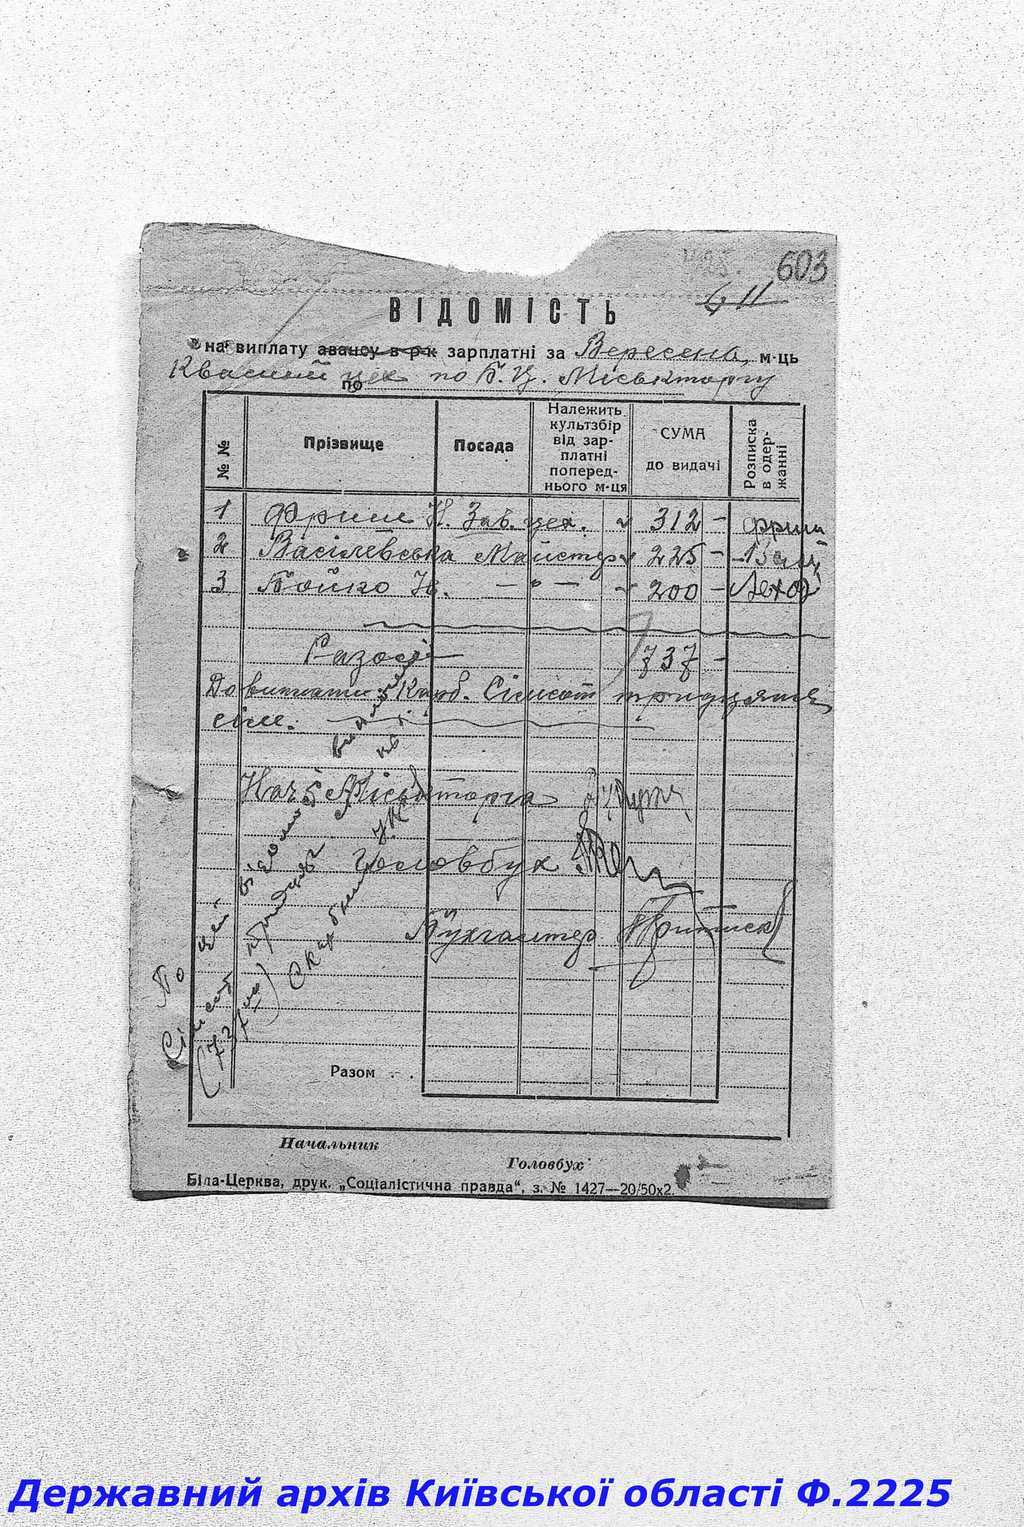 603
6/II
ВІДОМІСТЬ
на виплату авансу в р-к зарплатні за Вересень м-ць
Квасний цех по Б.Ц. Міськторгу
по
№ № Прізвище Посада Належить культзбір від зарплатні попереднього м-ця СУМА до видачі Розписка в одержанні
1 Фриш Н. Зав. цех. 312 – Фриш
2 Васілевська Майстер 225 –
3 Бойко Н. –"– 200 –
Разом 737 –
До виплати Карб. Сімсот тридцять
сім.
Нач. Б Міськторга
Головбух
Бухгалтер
По цей відомості виплачено
Сімсот тридцять сім
(737) Скарбник
Разом
Начальник
Головбух
Біла-Церква, друк. „Соціалістична правда", з. № 1427—20/50х2.
Державний архів Київської області Ф.2225